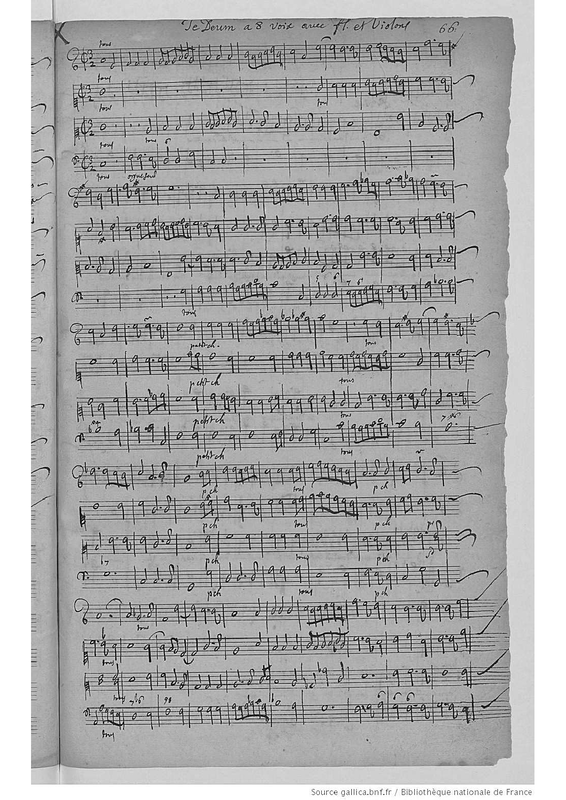 Te Deum a 8 voix avec fl. et Violons 66
X
tous
tous
tous
tous
tous
tous
tous
petit ch
tous
petit ch
tous
petit ch
tous
petit ch
tous
p ch
tous
p ch
p ch
tous
p ch
p ch
tous
p ch
p ch
tous
p ch
tous
tous
tous
tous
Source gallica.bnf.fr / Bibliothèque nationale de France